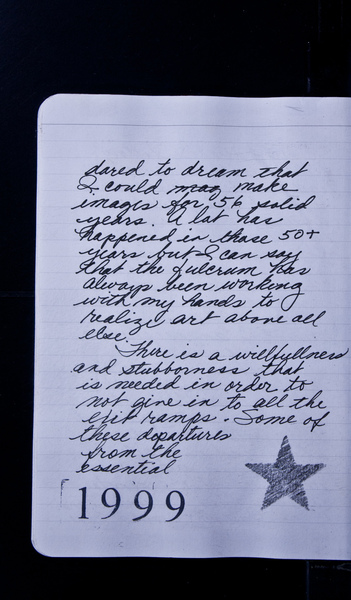 dared to dream that
I could mag make
images for 56 solid
years. A lot has
happened in those 50+
years but I can say
that the fulcrum has
always been working
with my hands to
realize art above all
else.
There is a willfullness
and stubborness that
is needed in order to
not give in to all the
exit ramps. Some of
these departures
from the
essential
1999